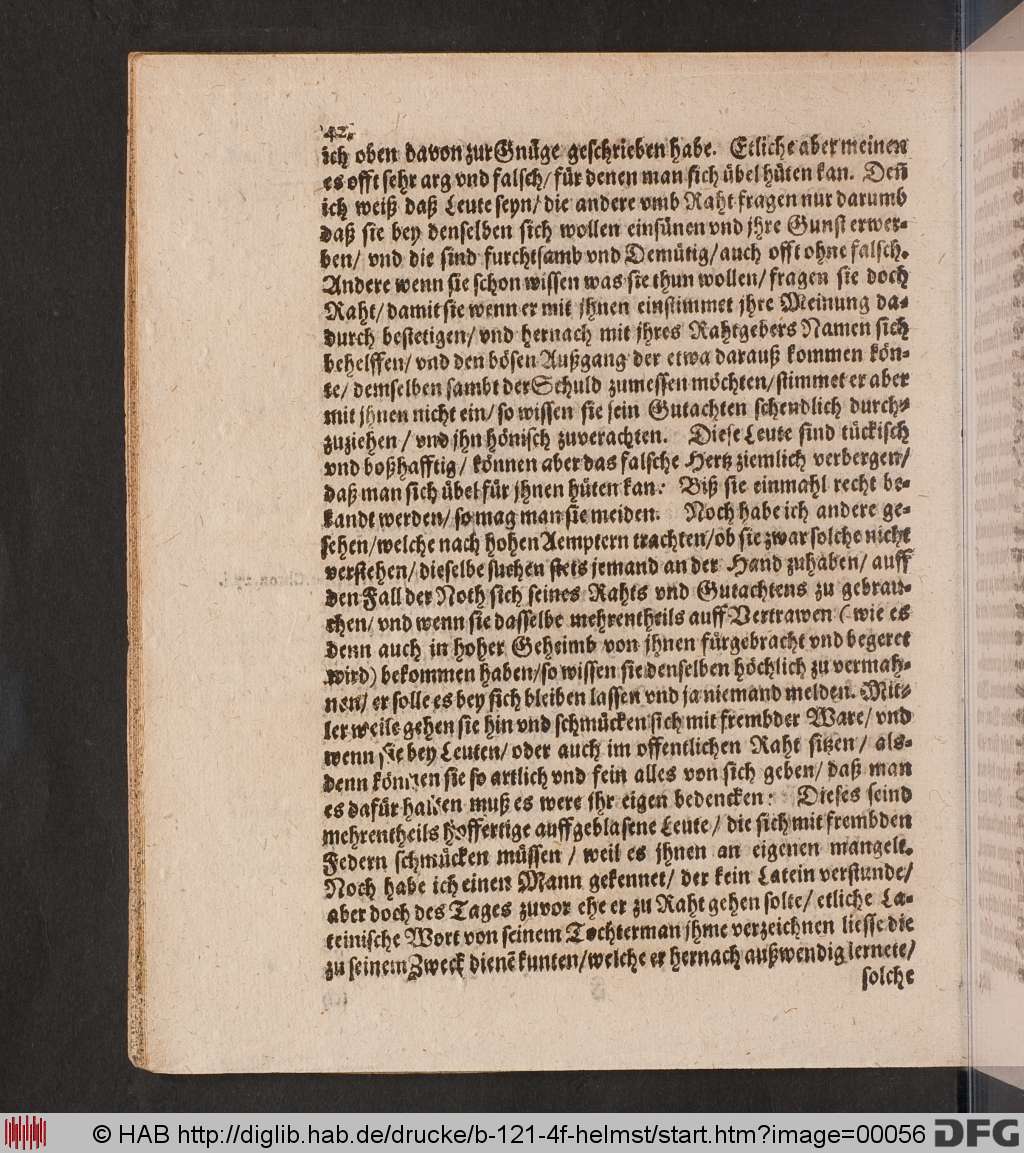 42.
ich oben davon zur Gnüge geschrieben habe. Etliche aber meinen
es offt sehr arg vnd falsch/ für denen man sich übel hüten kan. Deñ
ich weiß daß Leute seyn/ die andere vmb Raht fragen nur darumb
daß sie bey denselben sich wollen einsünen vnd jhre Gunst erwer-
ben/ vnd die sind furchtsamb vnd Demütig/ auch offt ohne falsch.
Andere wenn sie schon wissen was sie thun wollen/ fragen sie doch
Raht/ damit sie wenn er mit jhnen einstimmet jhre Meinung da-
durch bestetigen/ vnd hernach mit jhres Rahtgebers Namen sich
behelffen/ vnd den bösen Außgang der etwa darauß kommen kön-
te/ demselben sambt der Schuld zumessen möchten/ stimmet er aber
mit jhnen nicht ein/ so wissen sie sein Gutachten schendlich durch-
zuziehen/ vnd jhn hönisch zuverachten. Diese Leute sind tückisch
vnd boßhafftig/ können aber das falsche Hertz ziemlich verbergen/
daß man sich übel für jhnen hüten kan: Biß sie einmahl recht be-
kandt werden/ so mag man sie meiden. Noch habe ich andere ge-
sehen/ welche nach hohen Aemptern trachten/ ob sie zwar solche nicht
verstehen/ dieselbe suchen stets jemand an der Hand zuhaben/ auff
den Fall der Noth sich seines Rahts vnd Gutachtens zu gebrau-
chen/ vnd wenn sie dasselbe mehrentheils auff Vertrawen (wie es
denn auch in hoher Geheimb von jhnen fürgebracht vnd begeret
wird) bekommen haben/ so wissen sie denselben höchlich zu vermah-
nen/ er solle es bey sich bleiben lassen vnd ja niemand melden. Mit-
ler weile gehen sie hin vnd schmücken sich mit frembder Ware/ vnd
wenn sie bey Leuten/ oder auch im offentlichen Raht sitzen/ als-
denn können sie so artlich vnd fein alles von sich geben/ daß man
es dafür halten muß es were jhr eigen bedencken: Dieses seind
mehrentheils hoffertige auffgeblasene Leute/ die sich mit frembden
Federn schmücken müssen/ weil es jhnen an eigenen mangelt.
Noch habe ich einen Mann gekennet/ der kein Latein verstunde/
aber doch des Tages zuvor ehe er zu Raht gehen solte/ etliche La-
teinische Wort von seinem Tochterman jhme verzeichnen liesse die
zu seinem Zweck dienē kunten/ welche er hernach außwendig lernete/
solche
© HAB http://diglib.hab.de/drucke/b-121-4f-helmst/start.htm?image=00056
DFG